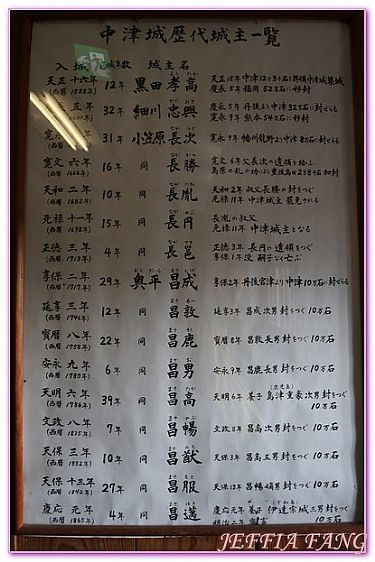 中津城歴代城主一覧
入城 在城年数 城主名
天正十六年 12年 黒田孝高 天正15年中津12万3千石を拝領中津城築城
(西暦1588年) 慶長5年福岡52万石に封
五年 32年 細川忠興 慶長5年丹後より中津32万石に封ぜらる
寛永9年熊本54万石に移封
31年 小笠原長次 寛永9年播州龍野より中津8万石に封ぜらる
(西暦1632年)
寛文六年 16年 同 長勝 寛文6年父長次の遺領を給ふ
(西暦1666年)
天和二年 10年 同 長胤 天和2年叔父長勝の封をつぐ
(西暦1682年) 元禄11年中津城主罷免さる
元禄十一年 15年 同 長円 長胤の叔父
(西暦1698年) 元禄11年中津城主となる
正徳三年 4年 同 長邕 正徳3年長円の遺領をつぐ
(西暦1713年) 享保1年没嗣子なく亡ぶ
享保二年 29年 奥平昌成 享保2年丹後宮津より中津10万石に封ぜらる
(西暦1717年)
延享三年 12年 同 昌敦 延享3年昌成次男封をつぐ10万石
(西暦1746年)
宝暦八年 22年 同 昌鹿 宝暦8年昌敦長男封をつぐ10万石
(西暦1758年)
安永九年 6年 同 昌男 安永9年昌鹿長男封をつぐ10万石
(西暦1780年)
天明六年 39年 同 昌高 天明6年養子島津重豪次男封をつぐ
(西暦1786年) 10万石
文政八年 7年 同 昌暢 文政8年昌高次男封をつぐ10万石
(西暦1825年)
天保三年 10年 同 昌猷 天保3年昌高五男封をつぐ10万石
(西暦1832年)
天保十三年 27年 同 昌服 天保13年昌暢嫡男封をつぐ10万石
(西暦1842年)
慶応元年 4年 同 昌邁 慶応元年養子伊達宗城三男封をつぐ
(西暦1865年) 10万石
JEFFIA FANG